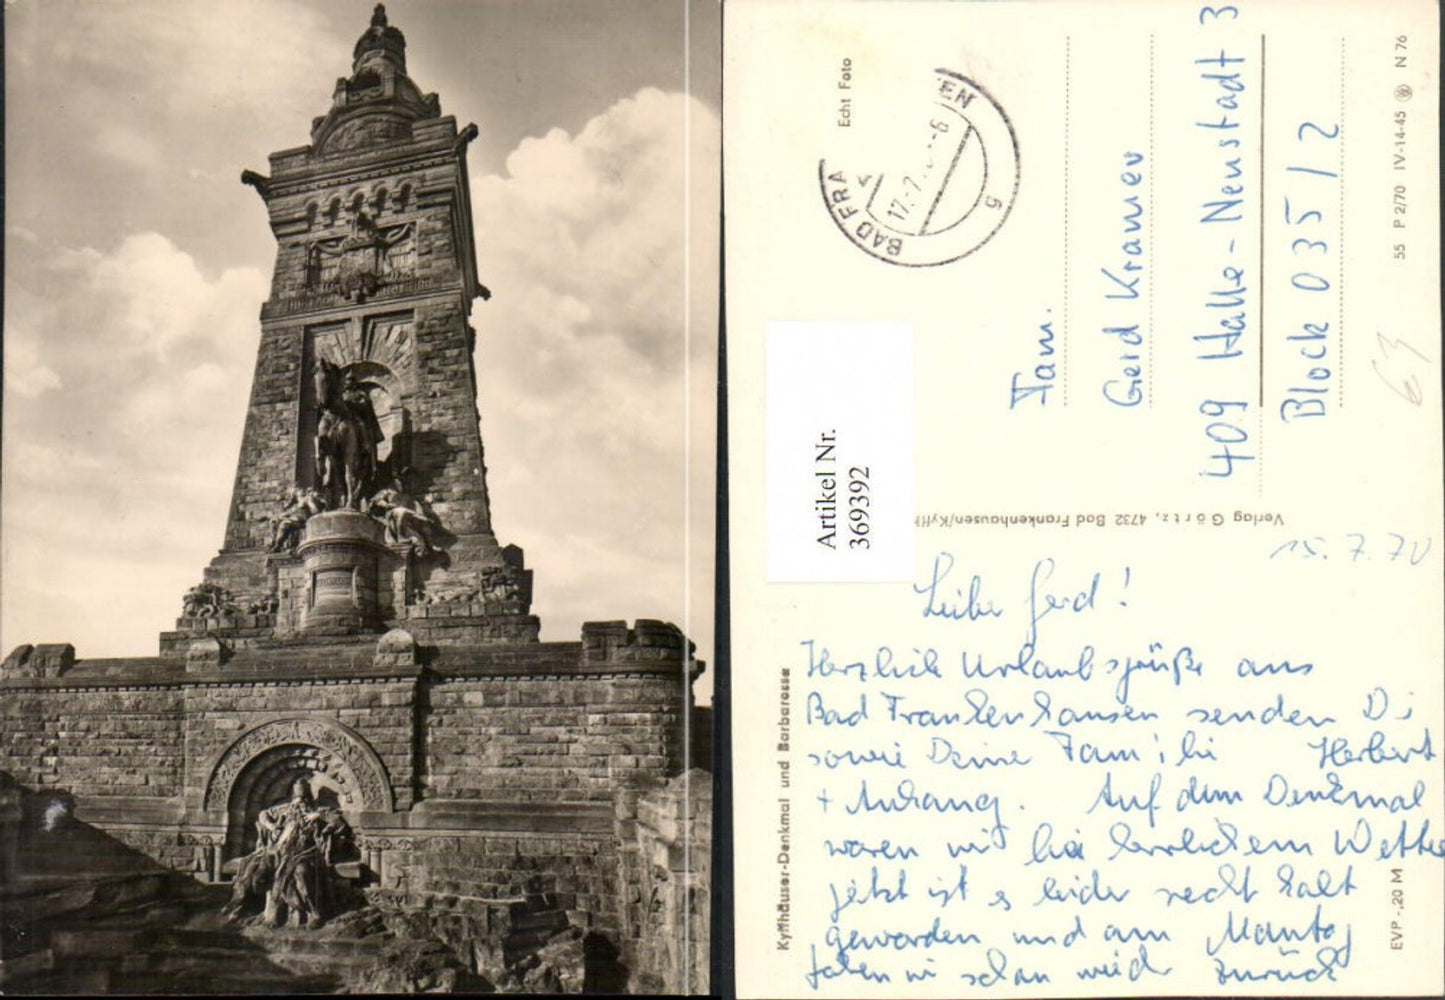 Echt Foto
BAD FRA
EN
17.-7.
-6
5
Fam.
Gerd Kramer
409 Halle-Neustadt 3
Block 035/2
55 P 2/70 IV-14-45 N 76
63
Artikel Nr.
369392
Verlag Görtz, 4732 Bad Frankenhausen/Kyffh
15.7.70
Liebe Gerd!
Herzlich Urlaubsgrüße aus
Bad Frankenhausen senden Di
sowie Deine Familie Herbert
+ Anhang. Auf dem Denkmal
waren wir bei herrlichem Wette
jetzt ist es leider recht kalt
geworden und am Montag
fahren wir schon wieder zurück
Kyffhäuser-Denkmal und Barbarossa
EVP -,20 M